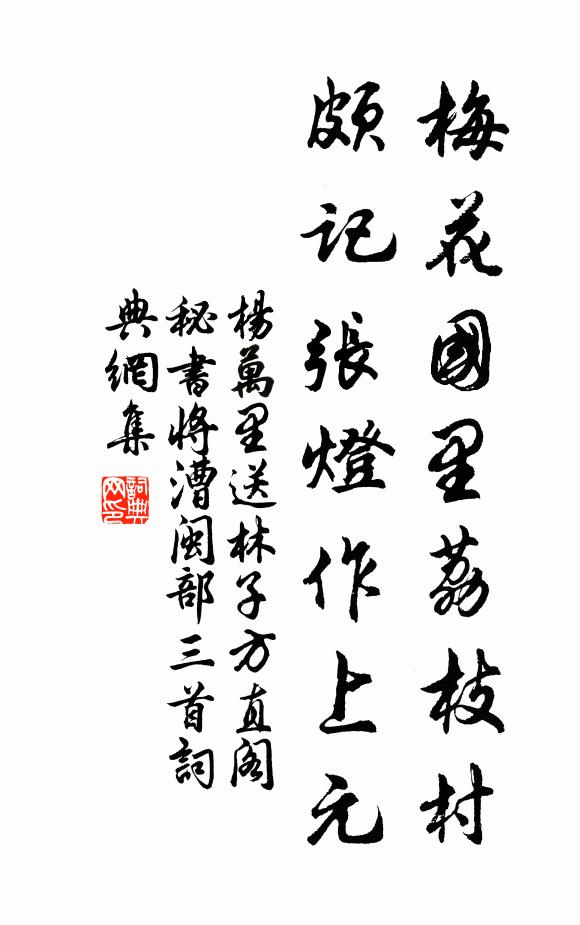 梅花國里荔枝村
頗記張燈作上元
楊萬里送林子方直閣
秘書將漕閩部三首詞
典網集
詞典網印